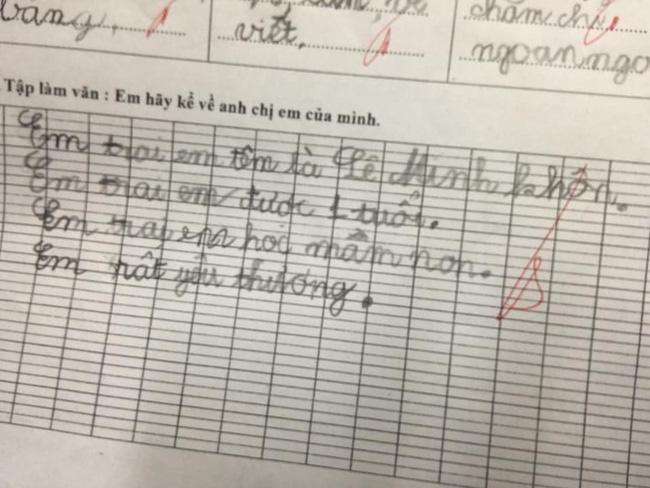 văng,
viết,
chăm chỉ,
ngoan ngo
Tập làm văn : Em hãy kể về anh chị em của mình.
Em trai em tên là Lê Minh khôn.
Em trai em được 1 tuổi.
Em trai em học mầm non.
Em rất yêu thương.